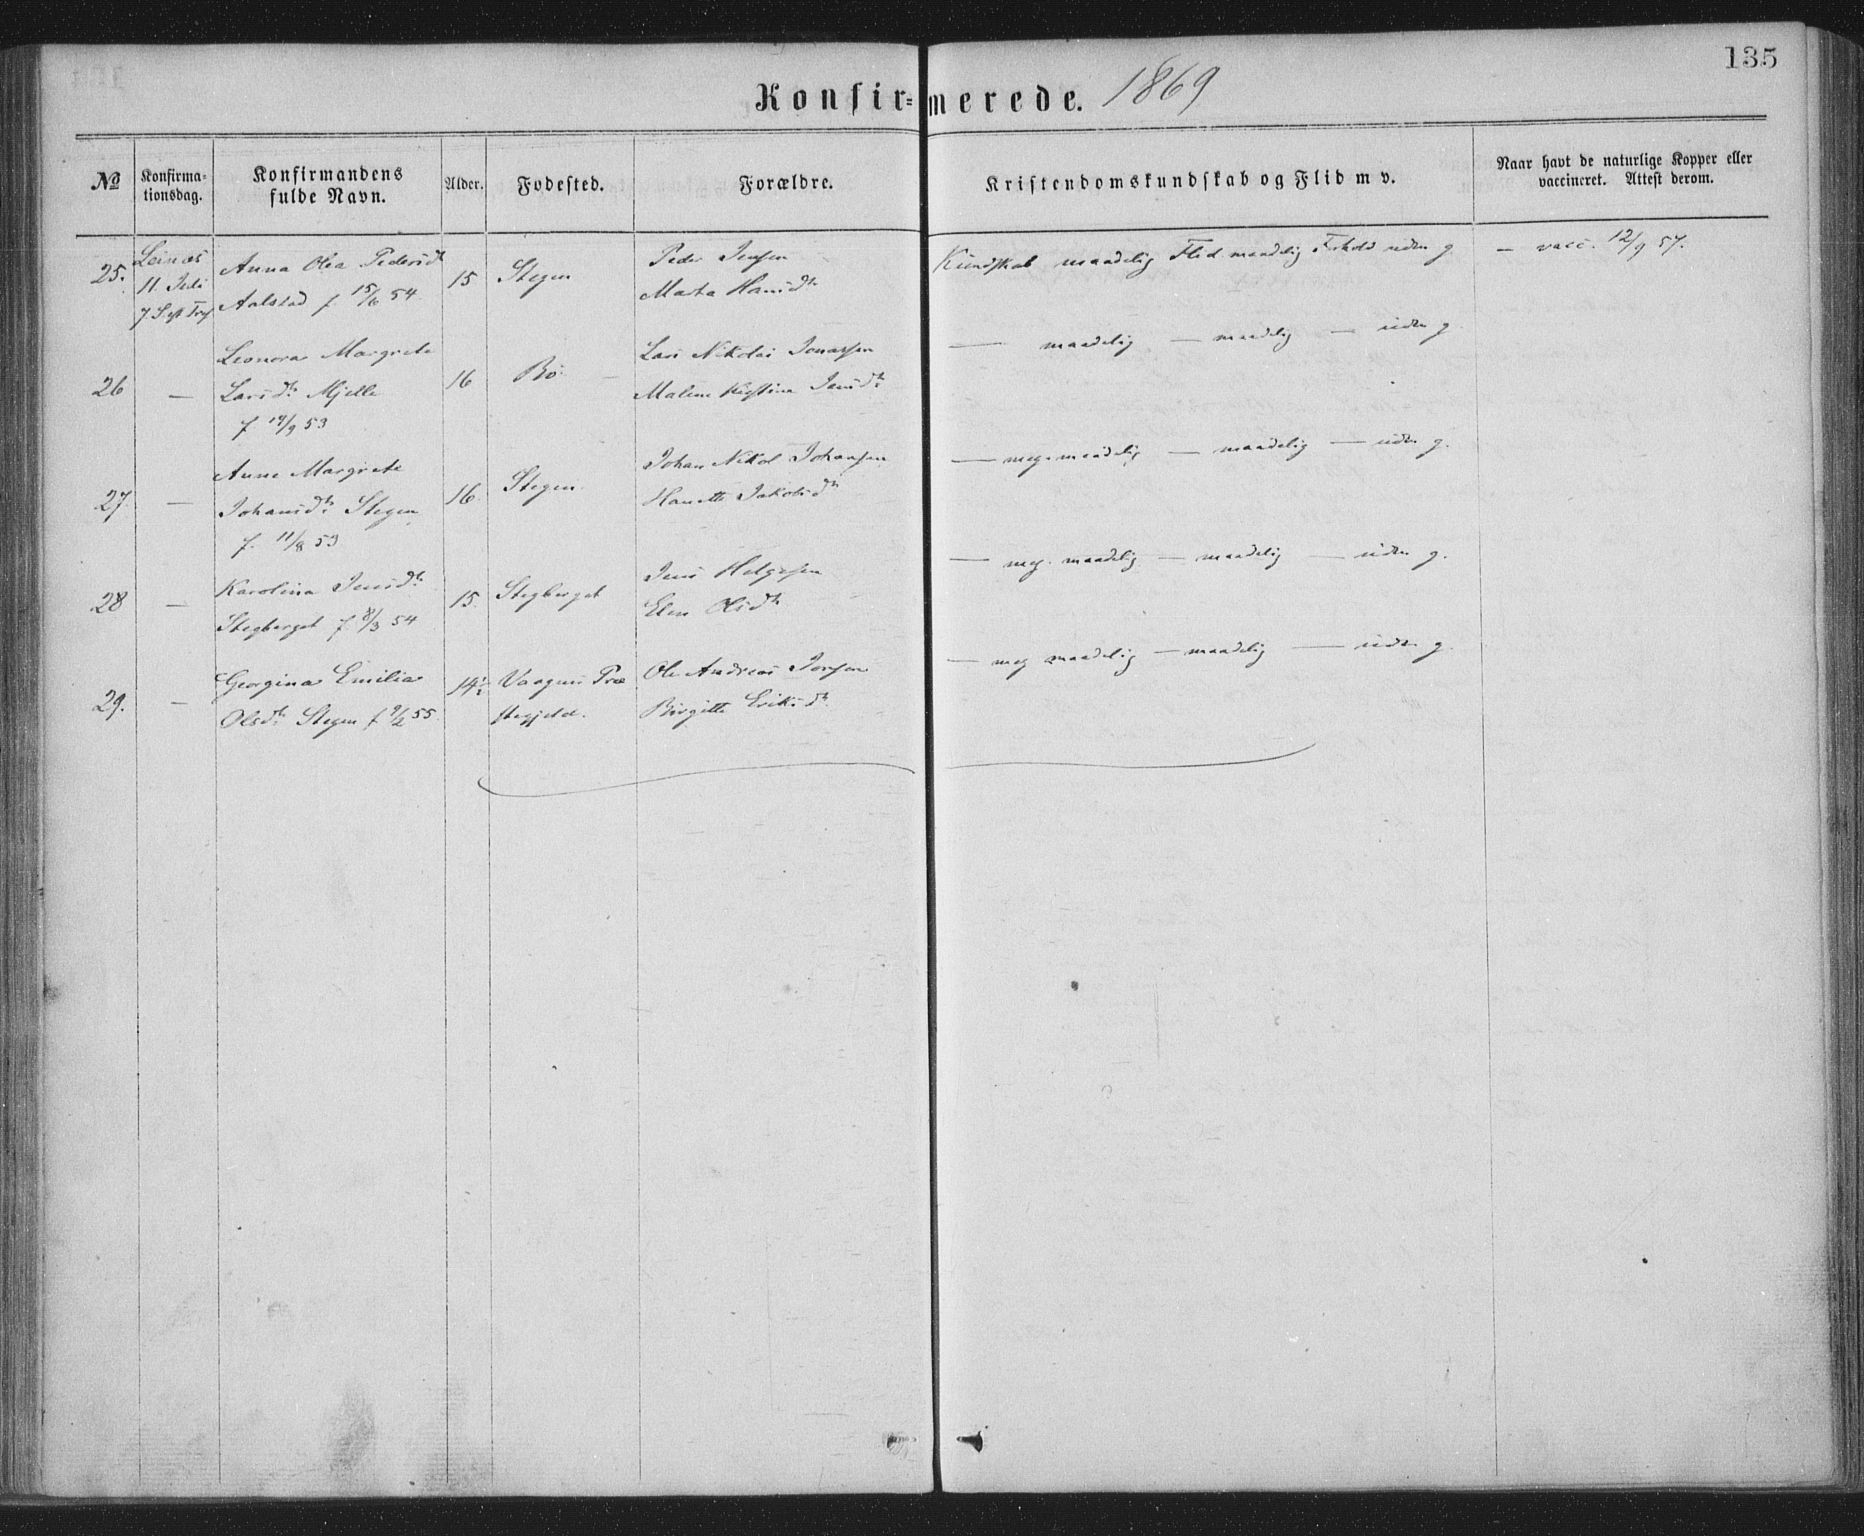 135
Konfir=merede. 1869
No
Konfirma-
tionsdag.
Konfirmandens
fulde Navn.
Alder.
Fødested.
Forældre.
Kristendomskundskab og Flid m v.
Naar havt de naturlige Kopper eller
vaccineret. Attest derom.
25.
Leines
11. Juli
7 S.
Anna Olea Pedersdtr
Aalstad f 15/6 54
15
Stegen
Peder Jensen
Marta Hansdtr
Kundskab maadelig Flid maadelig Forhold uden g
— vacc. 12/9 57.
26
—
Leonora Margrete
Larsdtr Mjelle
f 14/9 53
16
Bø
Lars Nikolai Jonassen
Malene Kristine Jansdtr
— maadelig — maadelig — uden g
27
—
Anne Margrete
Johansdtr Stegen
f. 11/8 53
16
Stegen
Johan Nikol Johansen
Hanette Jakobsdtr
— meg. maadelig — maadelig — uden g.
28
—
Karolina Jensdtr
Stegberget f 8/3 54
15.
Stegberget
Jens Helgesen
Elen Olsdtr
— meg. maadelig — maadelig — uden g.
29.
—
Georgina Emilia
Olsdtr Stegen f 9/2 55
14½
Vaagens Præ
stegjeld.
Ole Andreas
Birgitte Eriksdtr
— meg maadelig — maadelig — uden g.